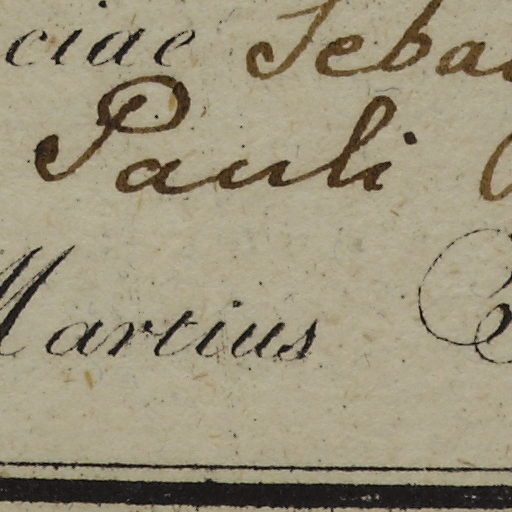 ciae Seba
Pauli
Martius